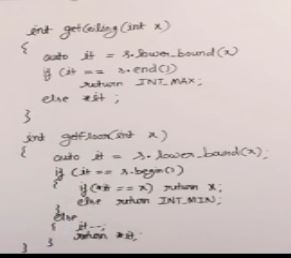 int getCeiling(int x)
{
auto it = s.lower_bound(x)
if (it == s.end())
return INT_MAX;
else *it ;
}
int getfloor(int x)
{
auto it = s.lower_bound(x);
if (it == s.begin())
{
if(*it == x) return x;
else return INT_MIN;
}
else
{ it--;
return *it;
} }